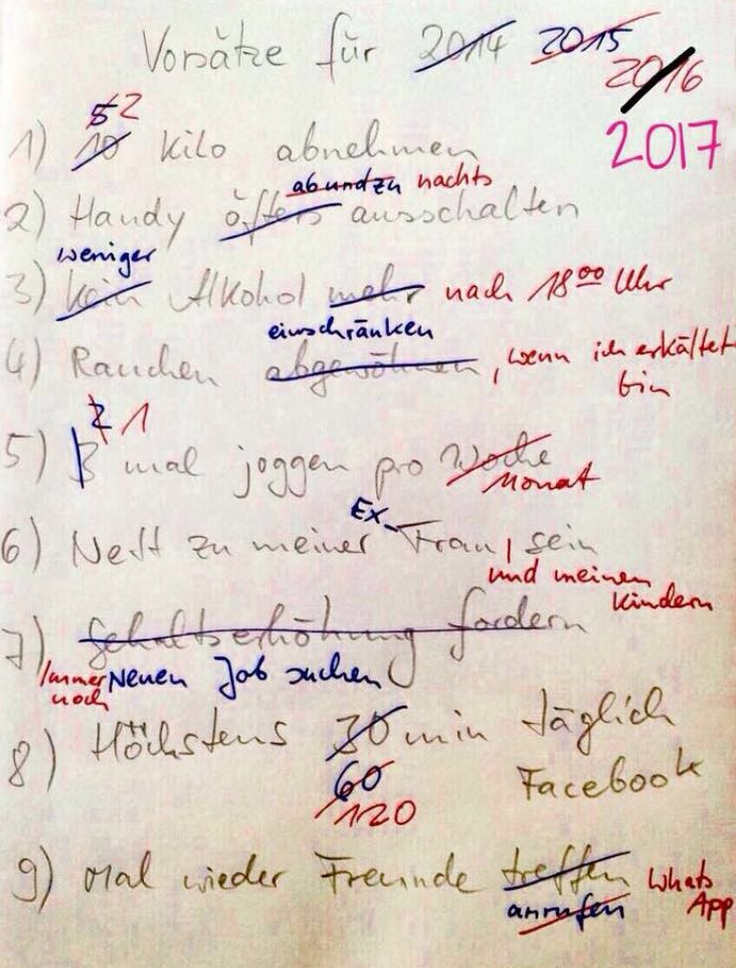 Vorsätze für 2014 2015
2016
2017
5 2
1) 10 Kilo abnehmen
ab und zu nachts
2) Handy öfters ausschalten
weniger
3) Kein Alkohol mehr nach 18 00 Uhr
einschränken
4) Rauchen abgewöhnen, wenn ich erkältet
bin
2 1
5) 3 mal joggen pro Woche
Monat
Ex-
6) Nett zu meiner Frau sein
und meinen
Kindern
7) Gehaltserhöhung fordern
Immer Neuen Job suchen
noch
8) Höchstens 30 min täglich
60 Facebook
120
9) Mal wieder Freunde treffen Whats
anrufen App